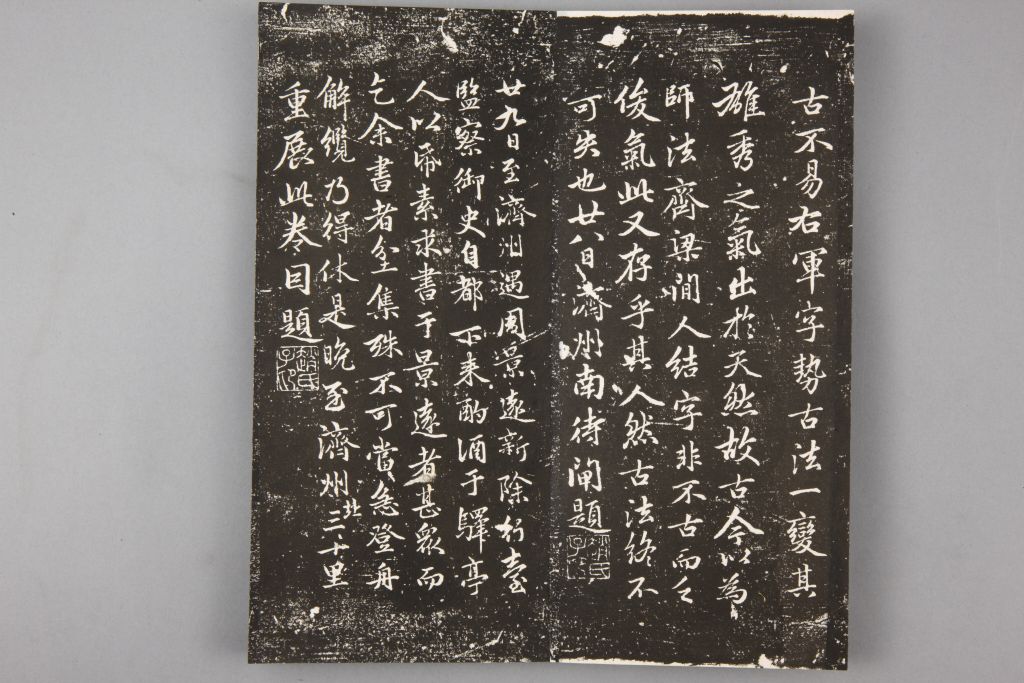 古不易右軍字勢古法一變其
雄秀之氣出於天然故古今以為
師法齊梁間人結字非不古而乏
俊氣此又存乎其人然古法終不
可失也廿八日濟州南待閘題
趙氏子昂
廿九日至濟州遇周景遠新除行臺
監察御史自都下來酌酒于驛亭
人以帋素求書于景遠者甚眾而
乞余書者坌集殊不可當急登舟
解纜乃得休是晚至濟州北三十里
重展此卷因題
趙氏子昂